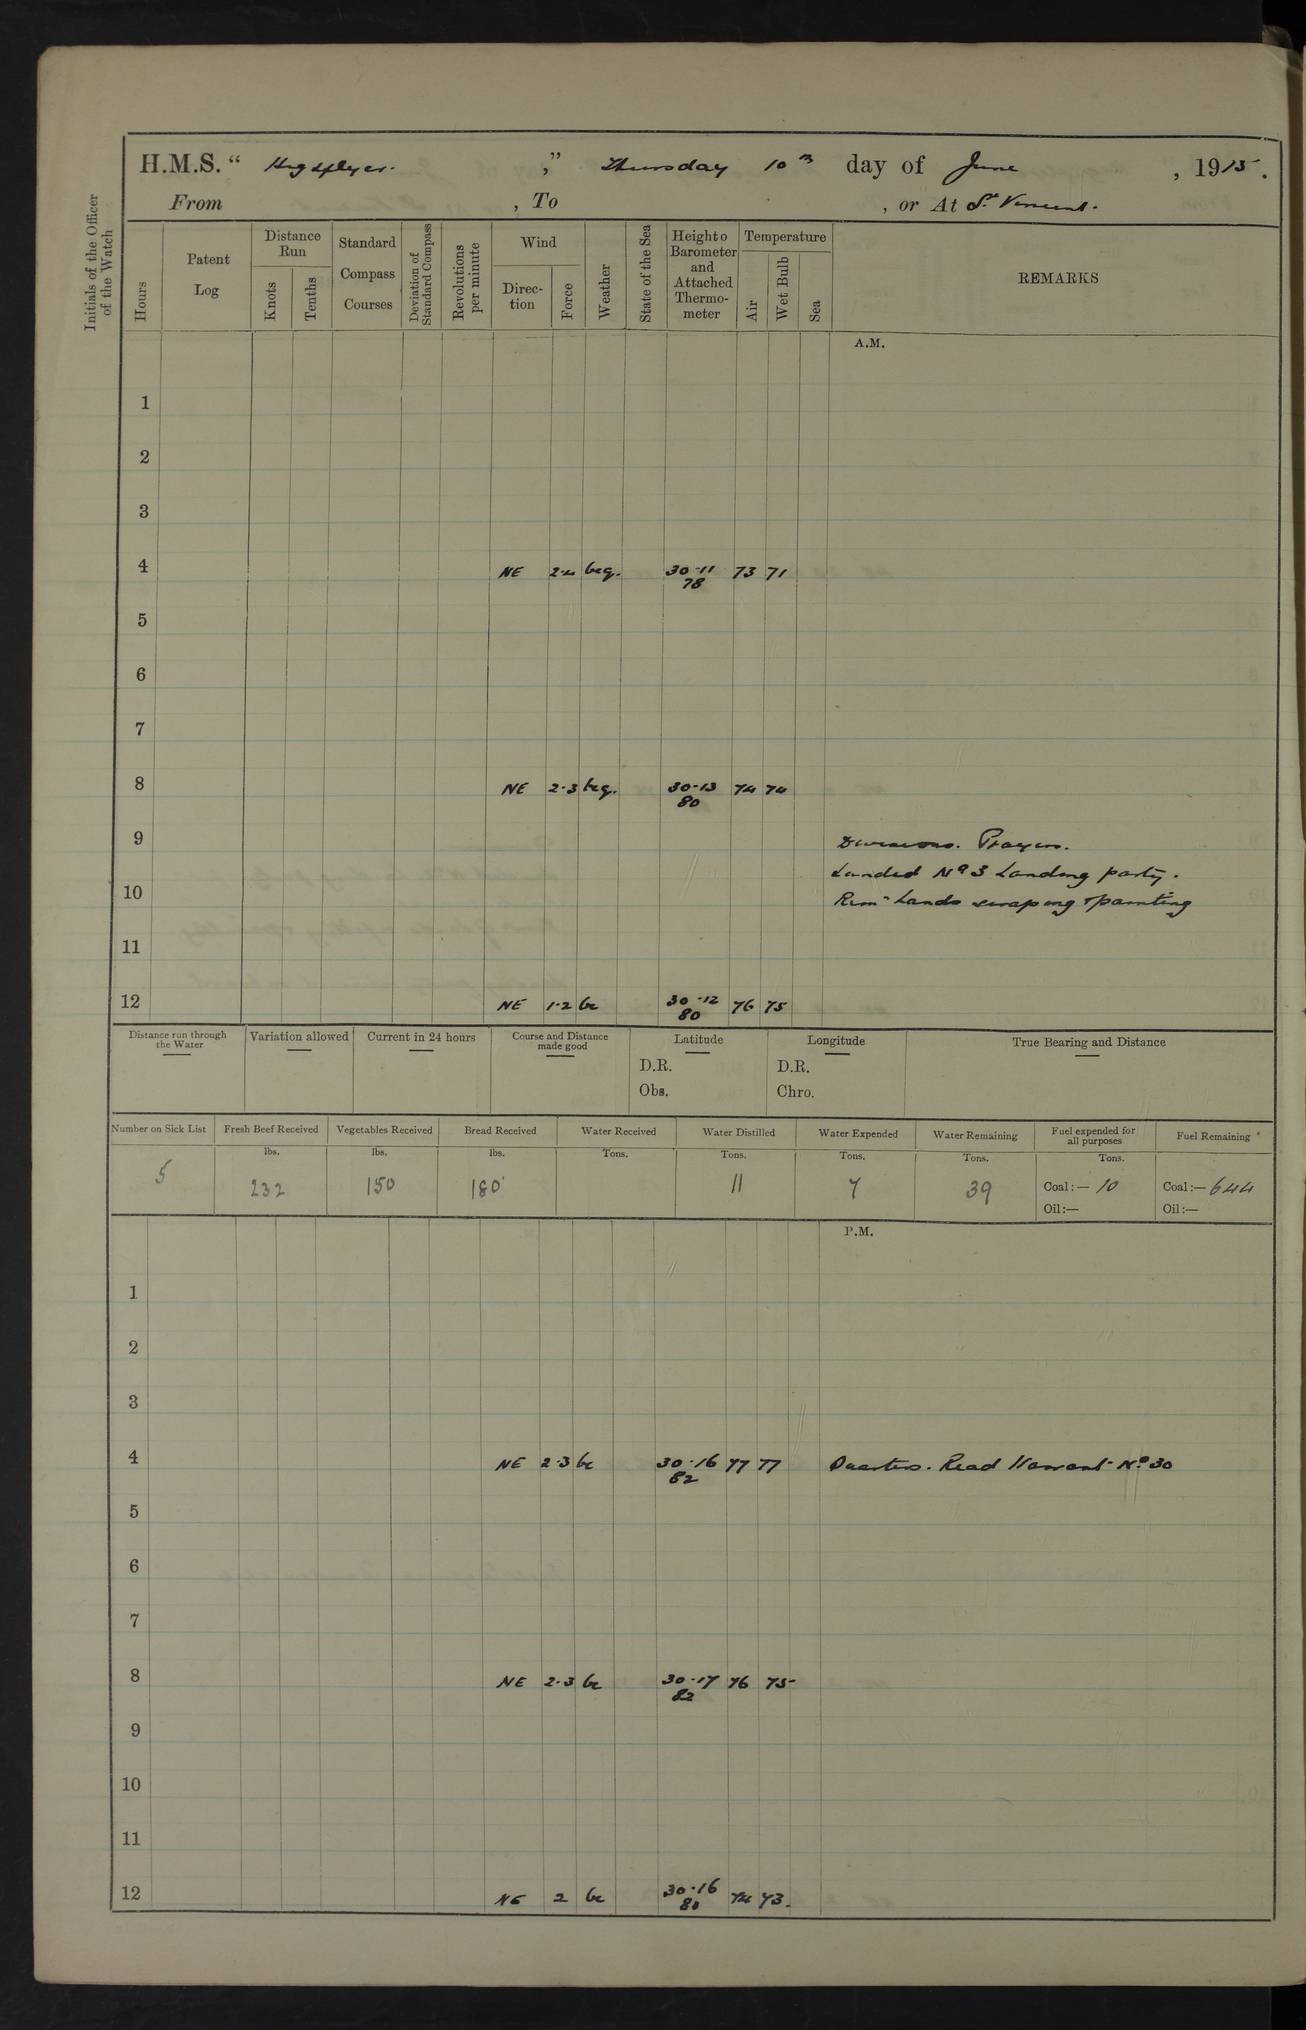 H.M.S. " Highflyer. ," Thursday 10th day of June , 1915.
From , To , or At St Vincent.
Initials of the Officer of the Watch
Hours
Patent Log
Distance Run
Knots
Tenths
Standard Compass Courses
Deviation of Standard Compass
Revolutions per minute
Wind
Direction
Force
Weather
State of the Sea
Height o Barometer and Attached Thermometer
Temperature
Air
Wet Bulb
Sea
REMARKS
A.M.
1
2
3
4 NE 2-4 bcq. 30-11 73 71
78
5
6
7
8 NE 2-3 bcq. 30-13 74 74
80
9 Divisions. Prayers.
Landed No 3 Landing party.
10 Rem. hands scraping & painting
11
12 NE 1-2 bc 30-12 76 75
80
Distance run through the Water
Variation allowed
Current in 24 hours
Course and Distance made good
Latitude
D.R.
Obs.
Longitude
D.R.
Chro.
True Bearing and Distance
Number on Sick List
5
Fresh Beef Received
lbs.
232
Vegetables Received
lbs.
150
Bread Received
lbs.
180
Water Received
Tons.
Water Distilled
Tons.
11
Water Expended
Tons.
7
Water Remaining
Tons.
39
Fuel expended for all purposes
Tons.
Coal:— 10
Oil:—
Fuel Remaining
Coal:— 644
Oil:—
P.M.
1
2
3
4 NE 2-3 bc 30-16 77 77 Quarters. Read Warrant No 30
82
5
6
7
8 NE 2-3 bc 30-17 76 75
82
9
10
11
12 NE 2 bc 30-16 74 73.
80